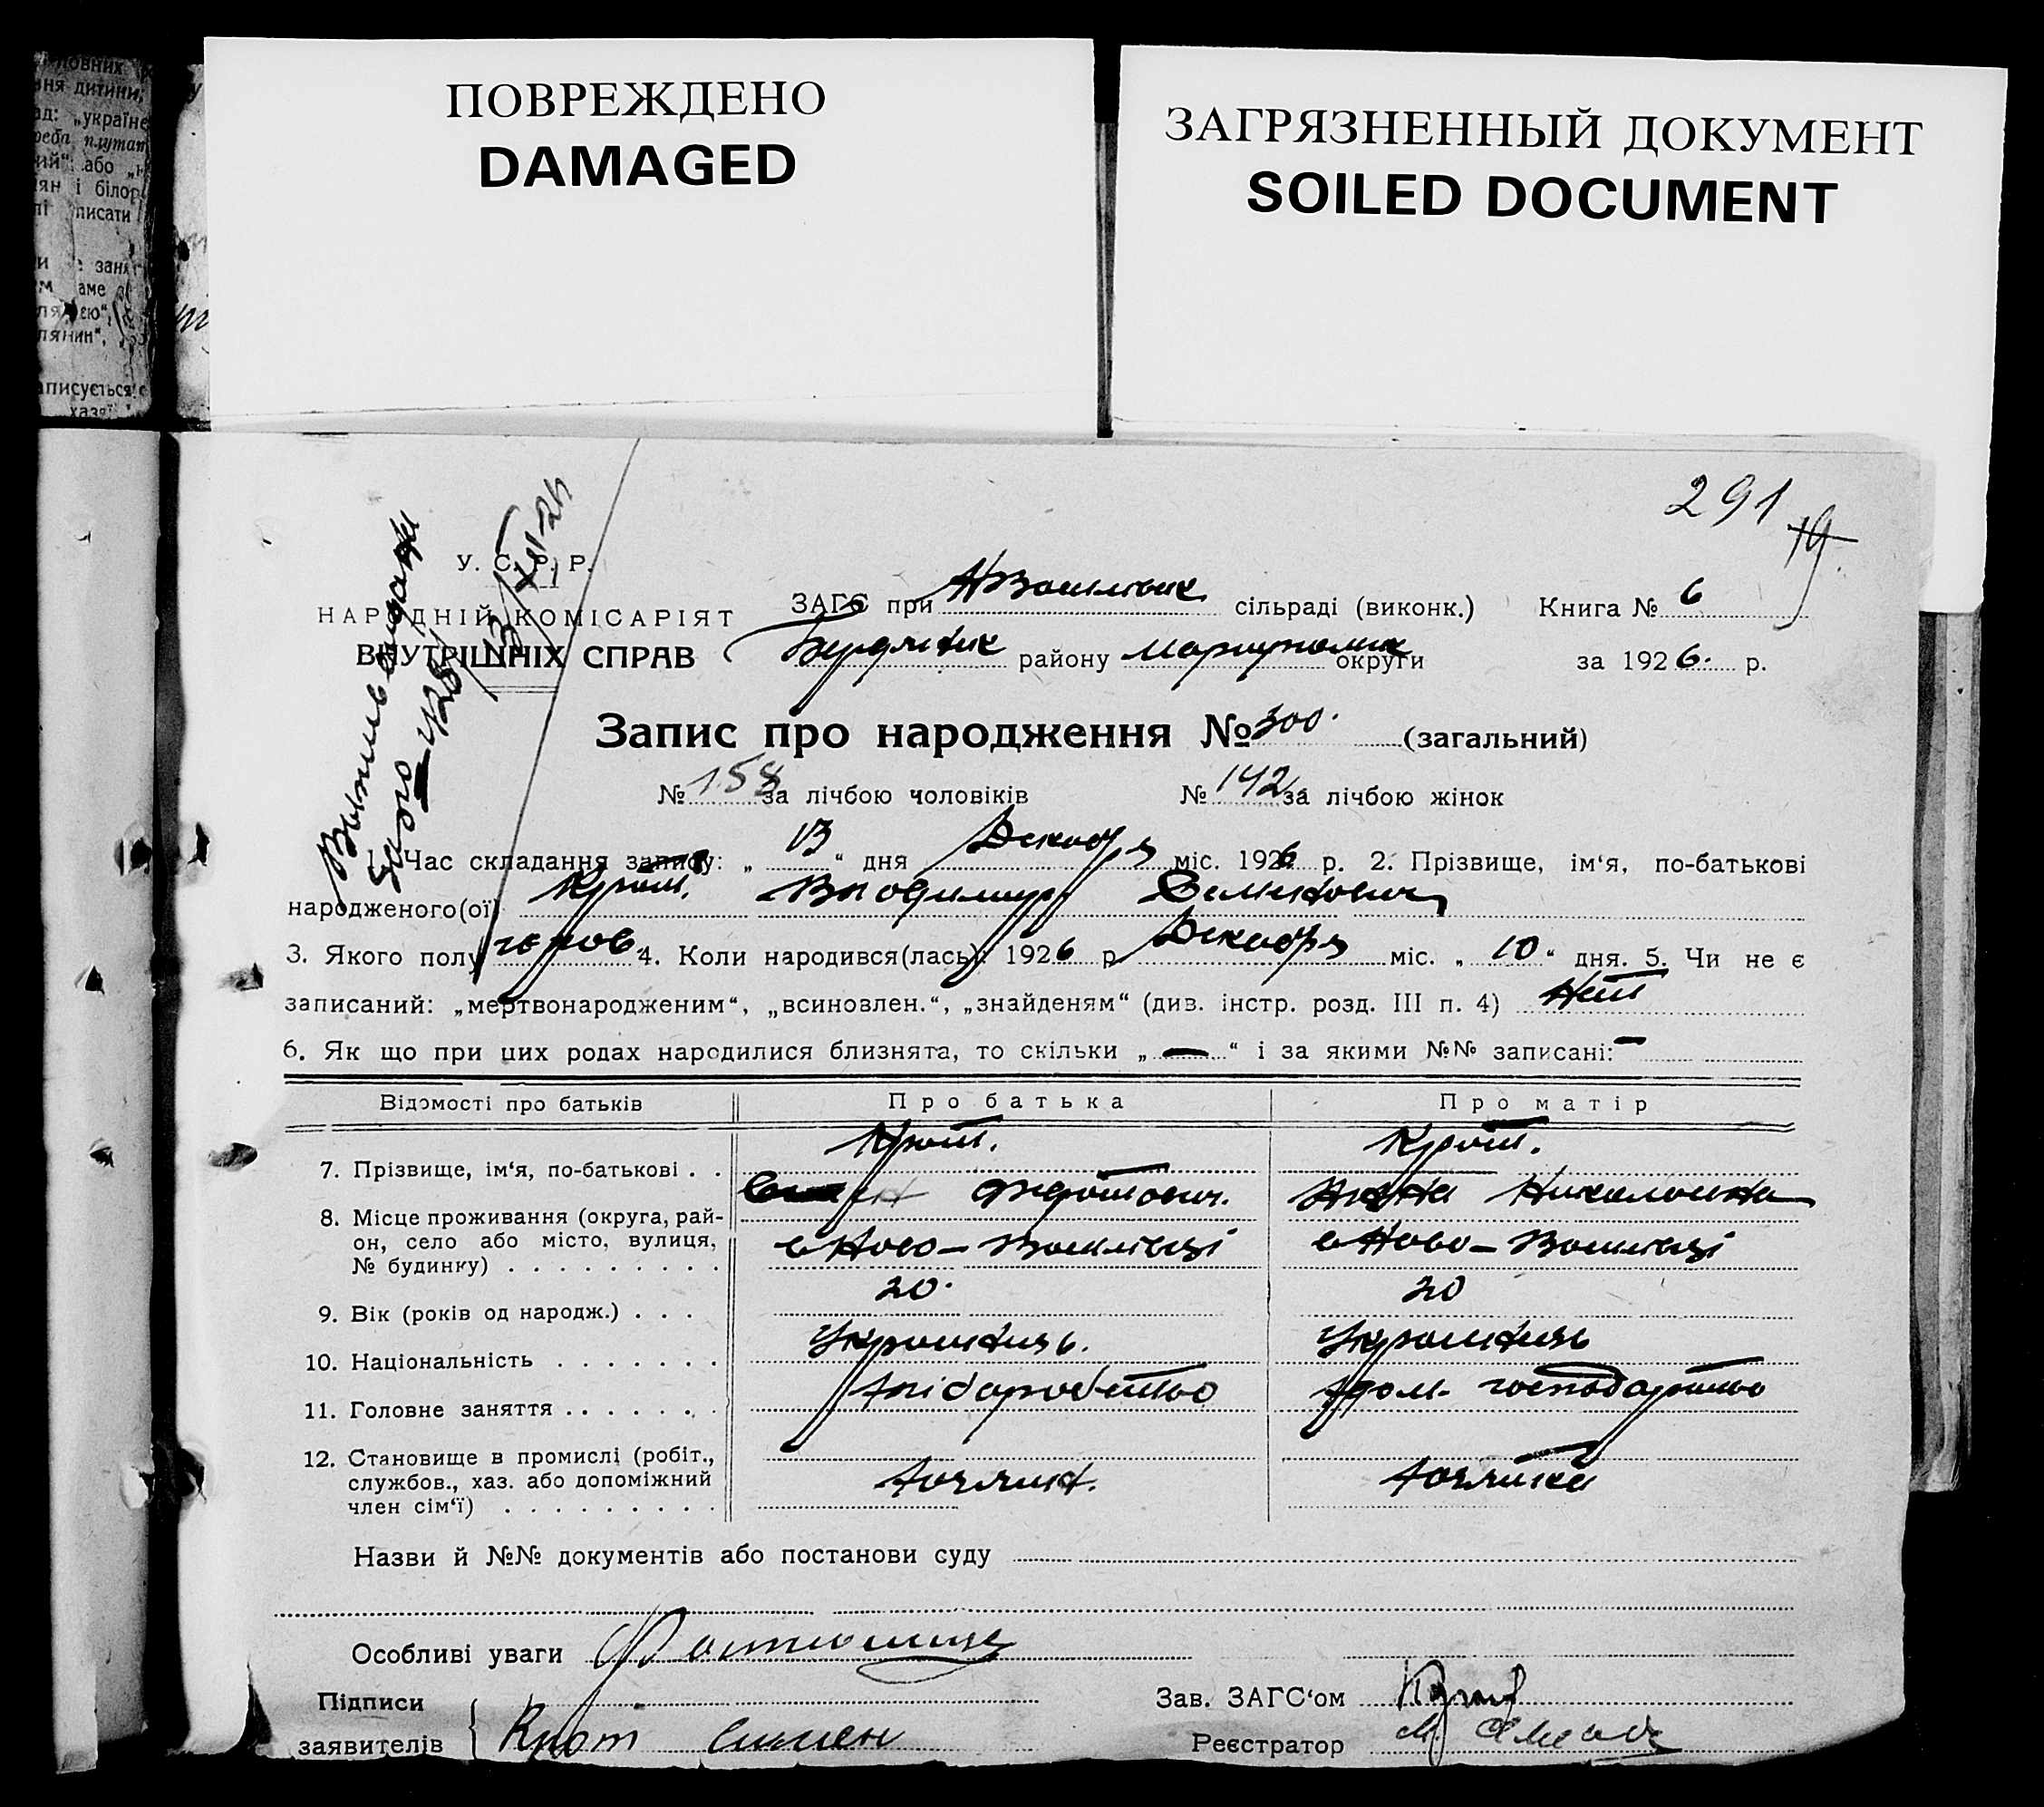 ПОВРЕЖДЕНО
DAMAGED
ЗАГРЯЗНЕННЫЙ ДОКУМЕНТ
SOILED DOCUMENT
291 19.
У. С. Р. Р.
НАРОДНІЙ КОМІСАРІЯТ
ВНУТРІШНІХ СПРАВ
ЗАГС при НВасильевк сільраді (виконк.) Книга № 6
Бердянск району Мариупольск округи за 1926. р.
Запис про народження № 300. (загальний)
№ 158 за лічбою чоловіків № 142 за лічбою жінок
Час складання запису: „ 13 “ дня Декабря міс. 1926 р. 2. Прізвище, ім‘я, по-батькові
народженого(ої) Крот. Владимир Семенович
3. Якого полу 4. Коли народився(лась): 1926 р. Декабря міс. „ 10 “ дня. 5. Чи не є
записаний: „мертвонародженим“, „всиновлен.“, „знайденям“ (див. інстр. розд. III п. 4) Нет
6. Як що при цих родах народилися близнята, то скільки „ — “ і за якими №№ записані: —
Відомості про батьків Про батька Про матір
7. Прізвище, ім‘я, по-батькові . . Крот. Крот.
Федотович. Анна Николаевна
8. Місце проживання (округа, рай-
он, село або місто, вулиця,
№ будинку) . . . . . . . . . с Ново-Василівці с Ново-Василівці
9. Вік (років од народж.) . . . 20. 20
10. Національність . . . . . . . Українець. Українець
11. Головне заняття . . . . . . хліборобство дом. господарство
12. Становище в промислі (робіт.,
службов., хаз. або допоміжний
член сім‘ї) . . . . . . . . . хозяин. хозяйка
Назви й №№ документів або постанови суду
Особливі уваги
Підписи
заявителів Крот Симен
Зав. ЗАГС‘ом
Реєстратор